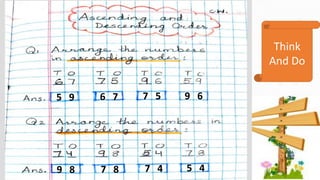 C.W.
Ascending and
Descending Order
Q1 Arrange the numbers
in ascending order:
T O T O T O T O
67 75 96 59
Ans. 59 67 75 96
Q2 Arrange the numbers in
descending order:
T O T O T O T O
74 98 54 78
Ans. 98 78 74 54
Think
And Do